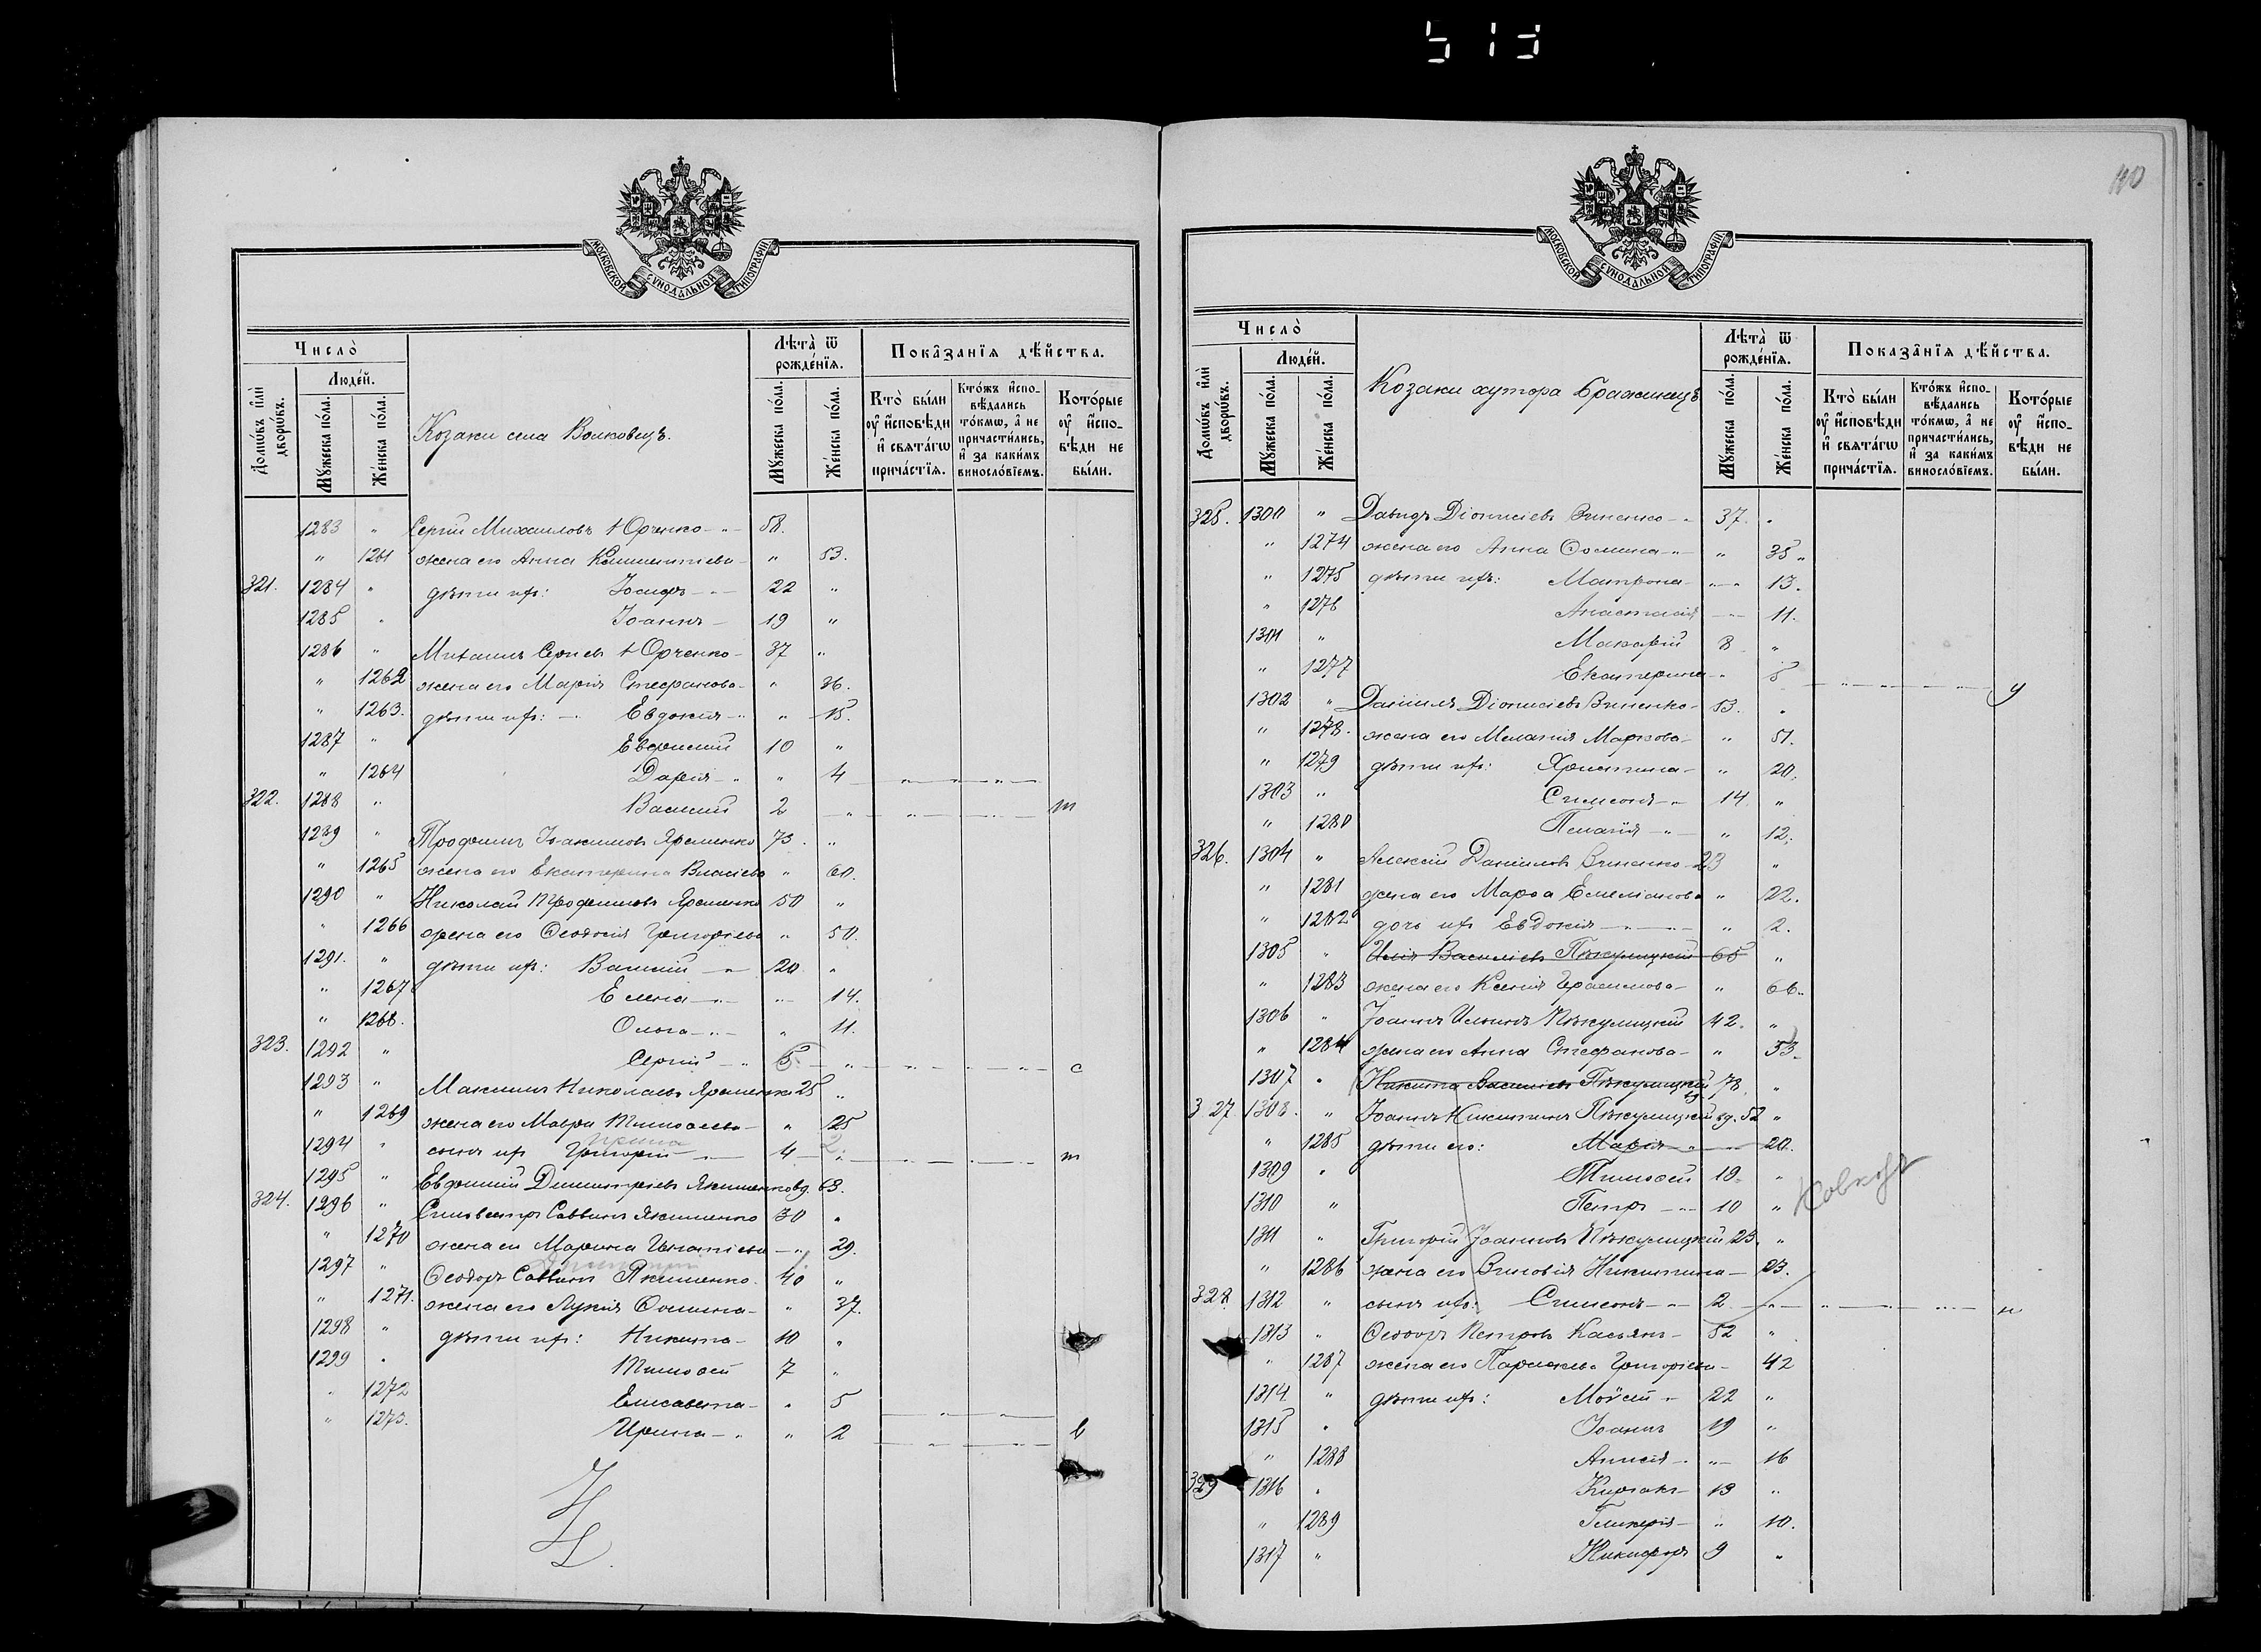 110
МОСКОВСКОЙ СѴНОДАЛЬНОЙ ТИПОГРАФІИ
Число̀
Людей.
Домѡвъ и҆лѝ дворѡвъ.
Мꙋжеска по́ла.
Же́нска по́ла.
Козаки села Волковецъ.
Лѣта̀ ѿ рожде́нїѧ.
Мꙋжеска по́ла.
Же́нска по́ла.
Показанїѧ дѣйства.
Кто̀ бы́ли ᲂу҆ и҆сповѣди и҆ свѧта́гѡ прича́стїѧ.
Кто́жъ и҆сповѣдались то́кмѡ, а҆ не причасти́лись, и҆ за каки́мъ винословїемъ.
Кото́рые ᲂу҆ и҆сповѣди не бы́ли.
1283 " Сергій Михаиловъ Юрченко 58.
" 1261 жена его Анна Климентіева " 53.
321. 1284 " дѣти ихъ: Іосифъ 22 "
1285 " Іоаннъ 19 "
1286 " Михаилъ Сергіевъ Юрченко 37 "
" 1262 жена его Марія Стефанова " 36.
" 1263. дѣти ихъ: Евдокія " 15.
1287 " Евфимій 10 "
" 1264 Дарія " 4
322. 1288 " Василій 2 " т
1289 " Трофимъ Іоакимовъ Яременко 73. "
" 1265 жена его Екатерина Власіева " 60.
1290 " Николай Трофимовъ Яременко 50 "
" 1266 жена его Ѳеодосія Григоріева " 50.
1291. " дѣти ихъ: Василій 20 "
" 1267 Елена " 14.
" 1268. Ольга " 11.
323. 1292 " Сергій 5 " с
1293 " Максимъ Николаевъ Яременко 25 "
" 1269 жена его Мавра Тимоѳеева " 25
Ирина 2
1294 " сынъ ихъ Григорій 4 " т
1295 " Евфимій Димитріевъ Якименко вд. 63.
324. 1296 " Сильвестръ Саввинъ Якименко 30 "
" 1270 жена его Марина Игнатіева " 29.
1297 " Ѳеодоръ Саввинъ Якименко 40 "
" 1271. жена его Лукія Ѳомина " 37.
1298 " дѣти ихъ: Никита 10 "
1299 " Тимоѳей 7 "
" 1272 Елисавета " 5
" 1273. Ирина " 2 в
МОСКОВСКОЙ СѴНОДАЛЬНОЙ ТИПОГРАФІИ
Число̀
Людей.
Домѡвъ и҆лѝ дворѡвъ.
Мꙋжеска по́ла.
Же́нска по́ла.
Козаки хутора Бражинецъ
Лѣта̀ ѿ рожде́нїѧ.
Мꙋжеска по́ла.
Же́нска по́ла.
Показанїѧ дѣйства.
Кто̀ бы́ли ᲂу҆ и҆сповѣди и҆ свѧта́гѡ прича́стїѧ.
Кто́жъ и҆сповѣдались то́кмѡ, а҆ не причасти́лись, и҆ за каки́мъ винословїемъ.
Кото́рые ᲂу҆ и҆сповѣди не бы́ли.
325. 1300 " Давидъ Діонисіевъ Зиненко 37. "
" 1274 жена его Анна Ѳомина " 35
" 1275 дѣти ихъ: Матрона " 13.
" 1276 Анастасія 11.
1301 " Макарій 8 "
" 1277 Екатерина " 5 у
1302 " Даніилъ Діонисіевъ Зиненко 53. "
" 1278. жена его Меланія Маркова " 51.
" 1279 дѣти ихъ: Христина " 20.
1303 " Симеонъ 14 "
" 1280 Пелагія " 12.
326. 1304 " Алексій Даніиловъ Зиненко 23 "
" 1281 жена его Марѳа Емеліанова " 22.
" 1282 дочь ихъ Евдокія " 2.
1305 " Илія Василіевъ Пѣкулицкій 65 "
" 1283 жена его Ксенія Герасимова " 66.
1306 " Іоаннъ Ильинъ Пѣкулицкій 42. "
" 1284 жена его Анна Стефанова " 33.
1307 " Никита Василіевъ Пѣкулицкій вд. 78 "
327 1308. " Іоаннъ Никитинъ Пѣкулицкій вд. 52 "
" 1285 дѣти его: Марія 20.
1309 " Тимоѳей 19. "
1310 " Петръ 10 "
1311 " Григорій Іоанновъ Пѣкулицкій 23. "
" 1286 жена его Зиновія Никитина 23.
328 1312 " сынъ ихъ: Симеонъ 2 " н
1313 " Ѳеодоръ Петровъ Касьянъ 52 "
" 1287 жена его Параскева Григоріева 42
1314 " дѣти ихъ: Моѵсей 22 "
1315 " Іоаннъ 19 "
" 1288 Анисія " 16
329 1316 " Киріакъ 13 "
" 1289 Гликерія " 10.
1317 " Никифоръ 9 "